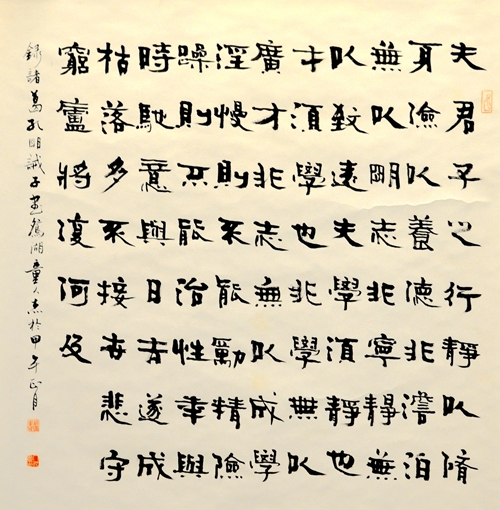 夫君子之行靜以脩
身儉以養德非澹泊
無以明志非寧靜無
以致遠夫學須靜也
才須學也非學無以
廣才非志無以成學
淫慢則不能勵精險
躁則不能治性年與
時馳意與日去遂成
枯落多不接世悲守
窮廬將復何及
錄諸葛孔明誡子書鴛湖童人杰於甲午正月